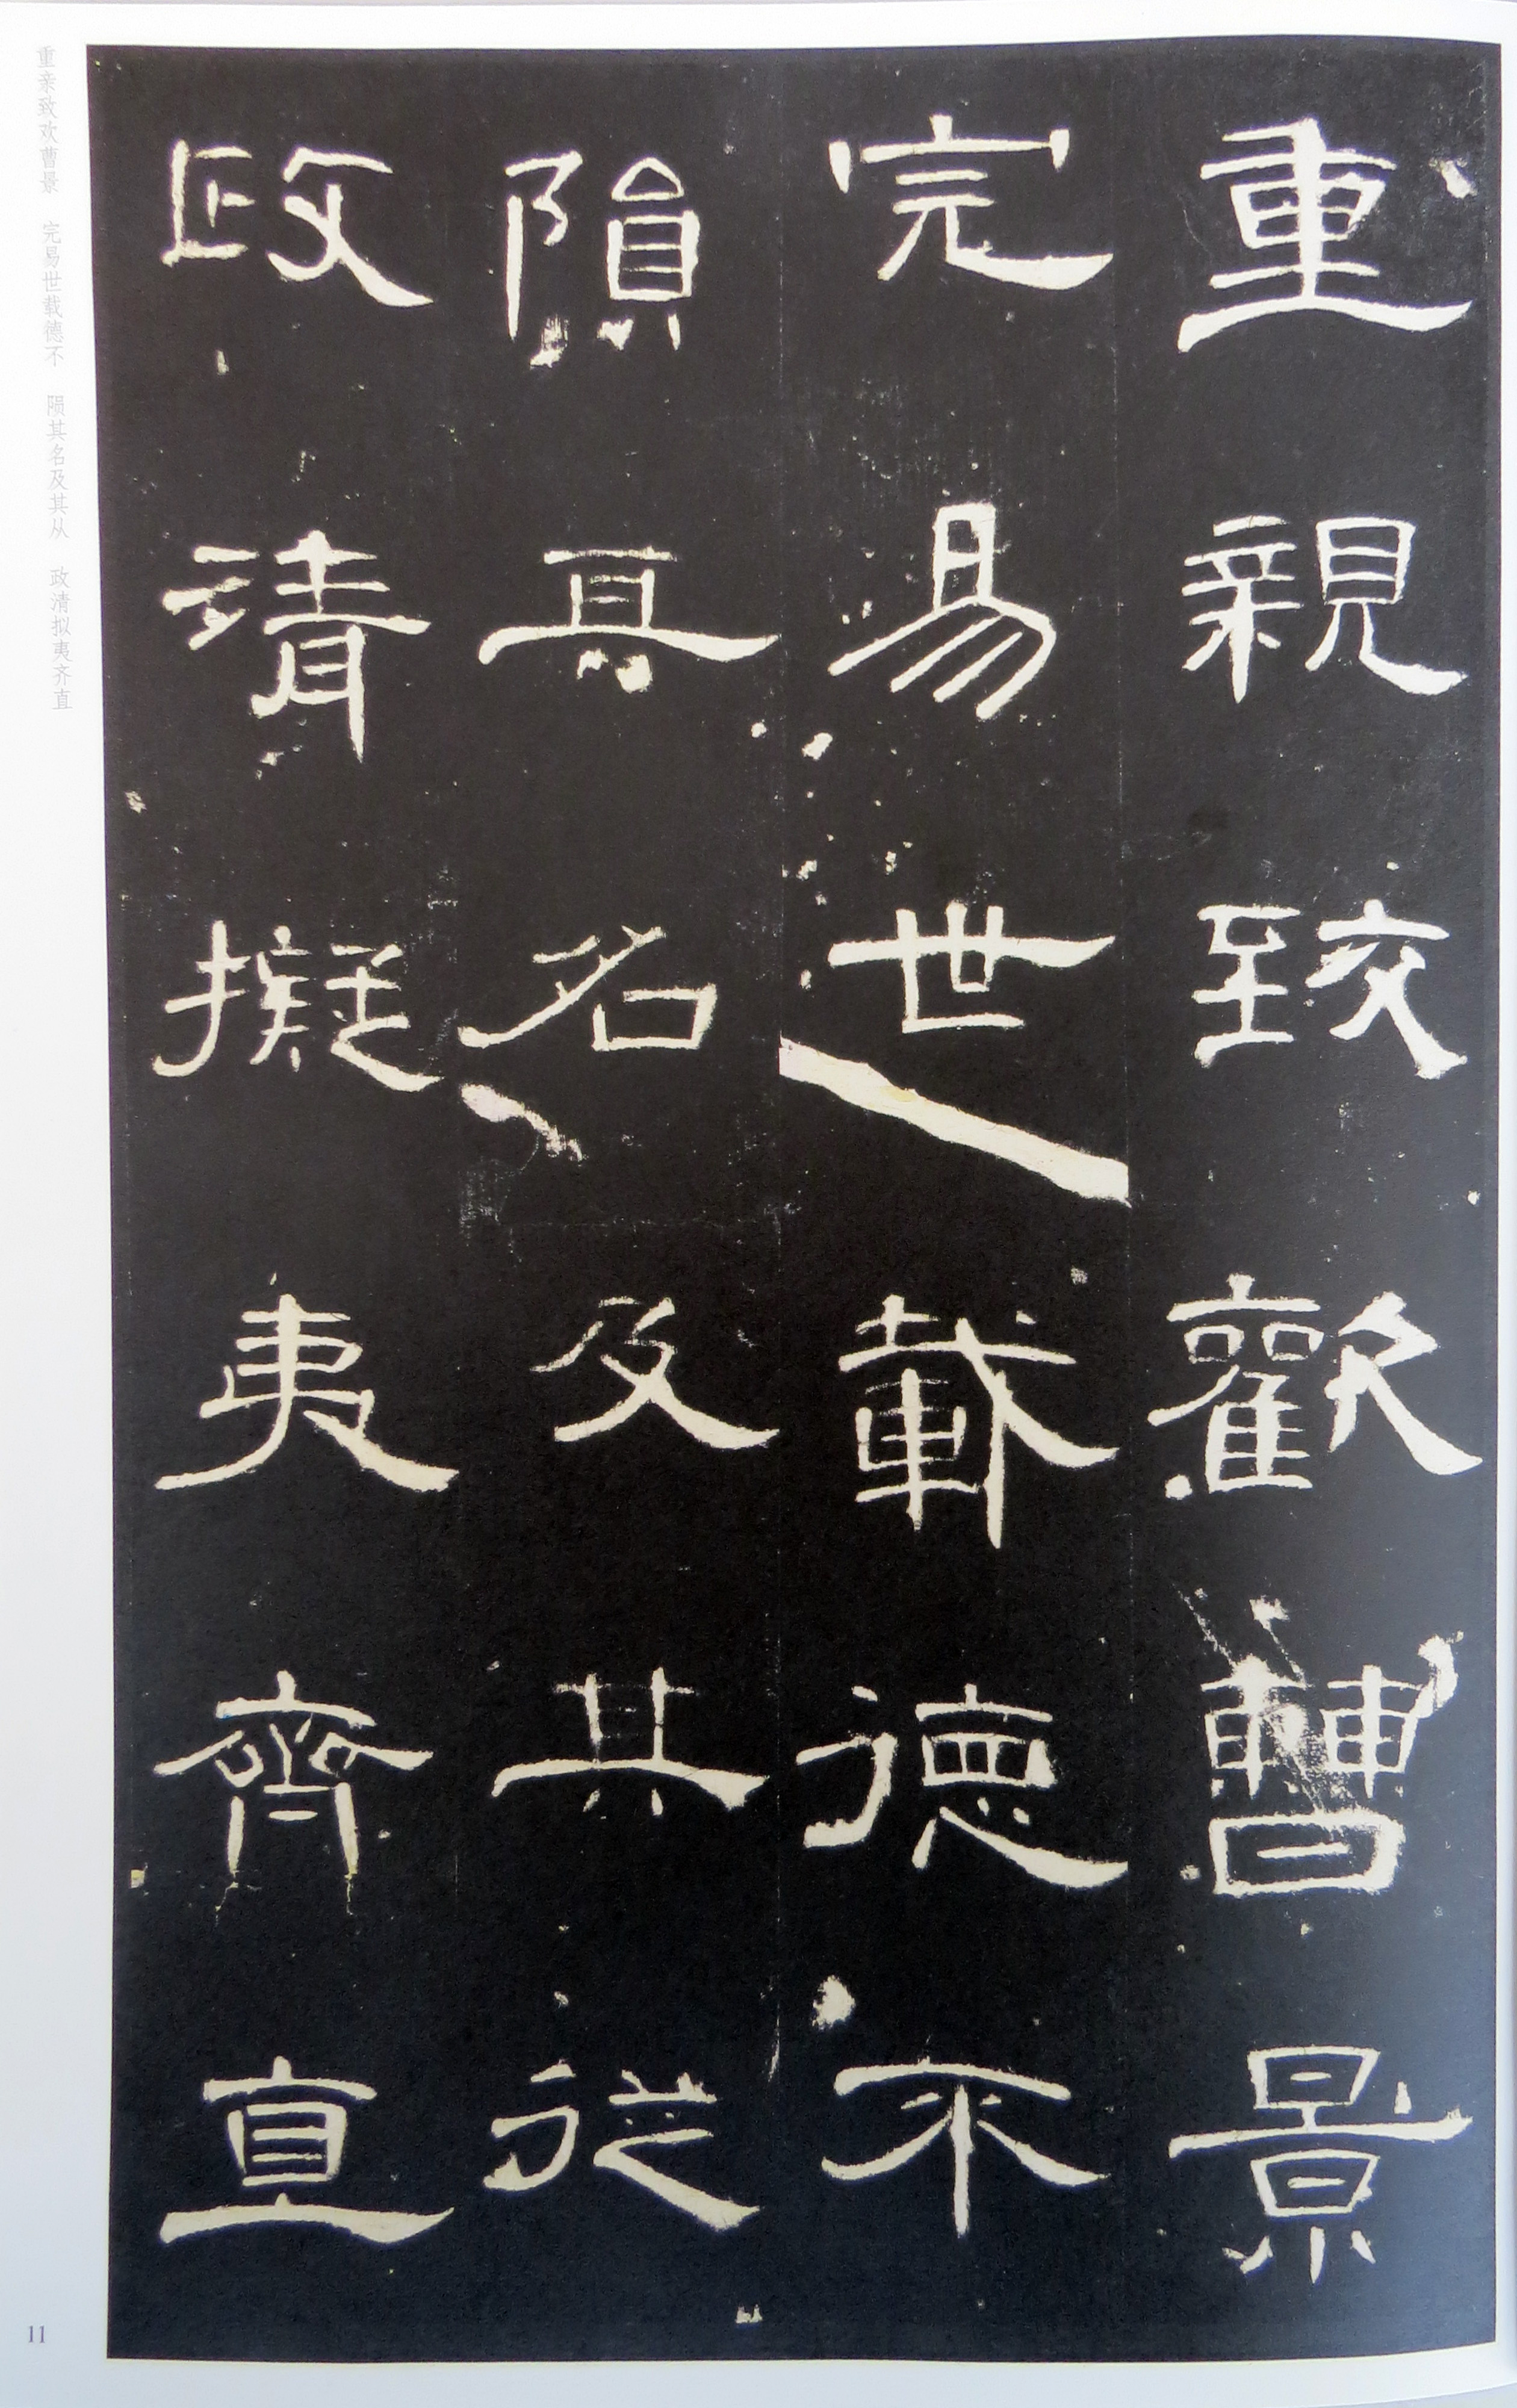 重親致歡曹景
完易世載德不
隕其名及其從
政清擬夷齊直
重亲致欢曹景 完易世载德不 陨其名及其从 政清拟夷齐直
11